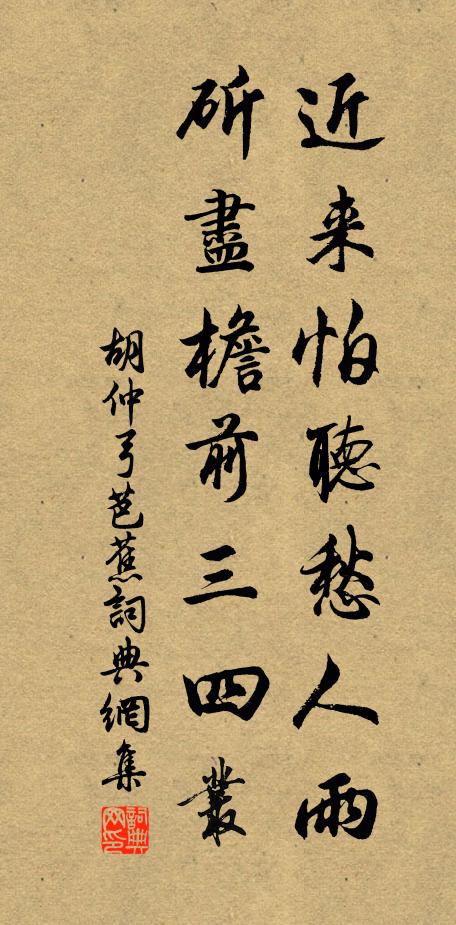 近来怕聽愁人雨
斫盡檐前三四叢
胡仲弓芭蕉詞典網集
詞典网印